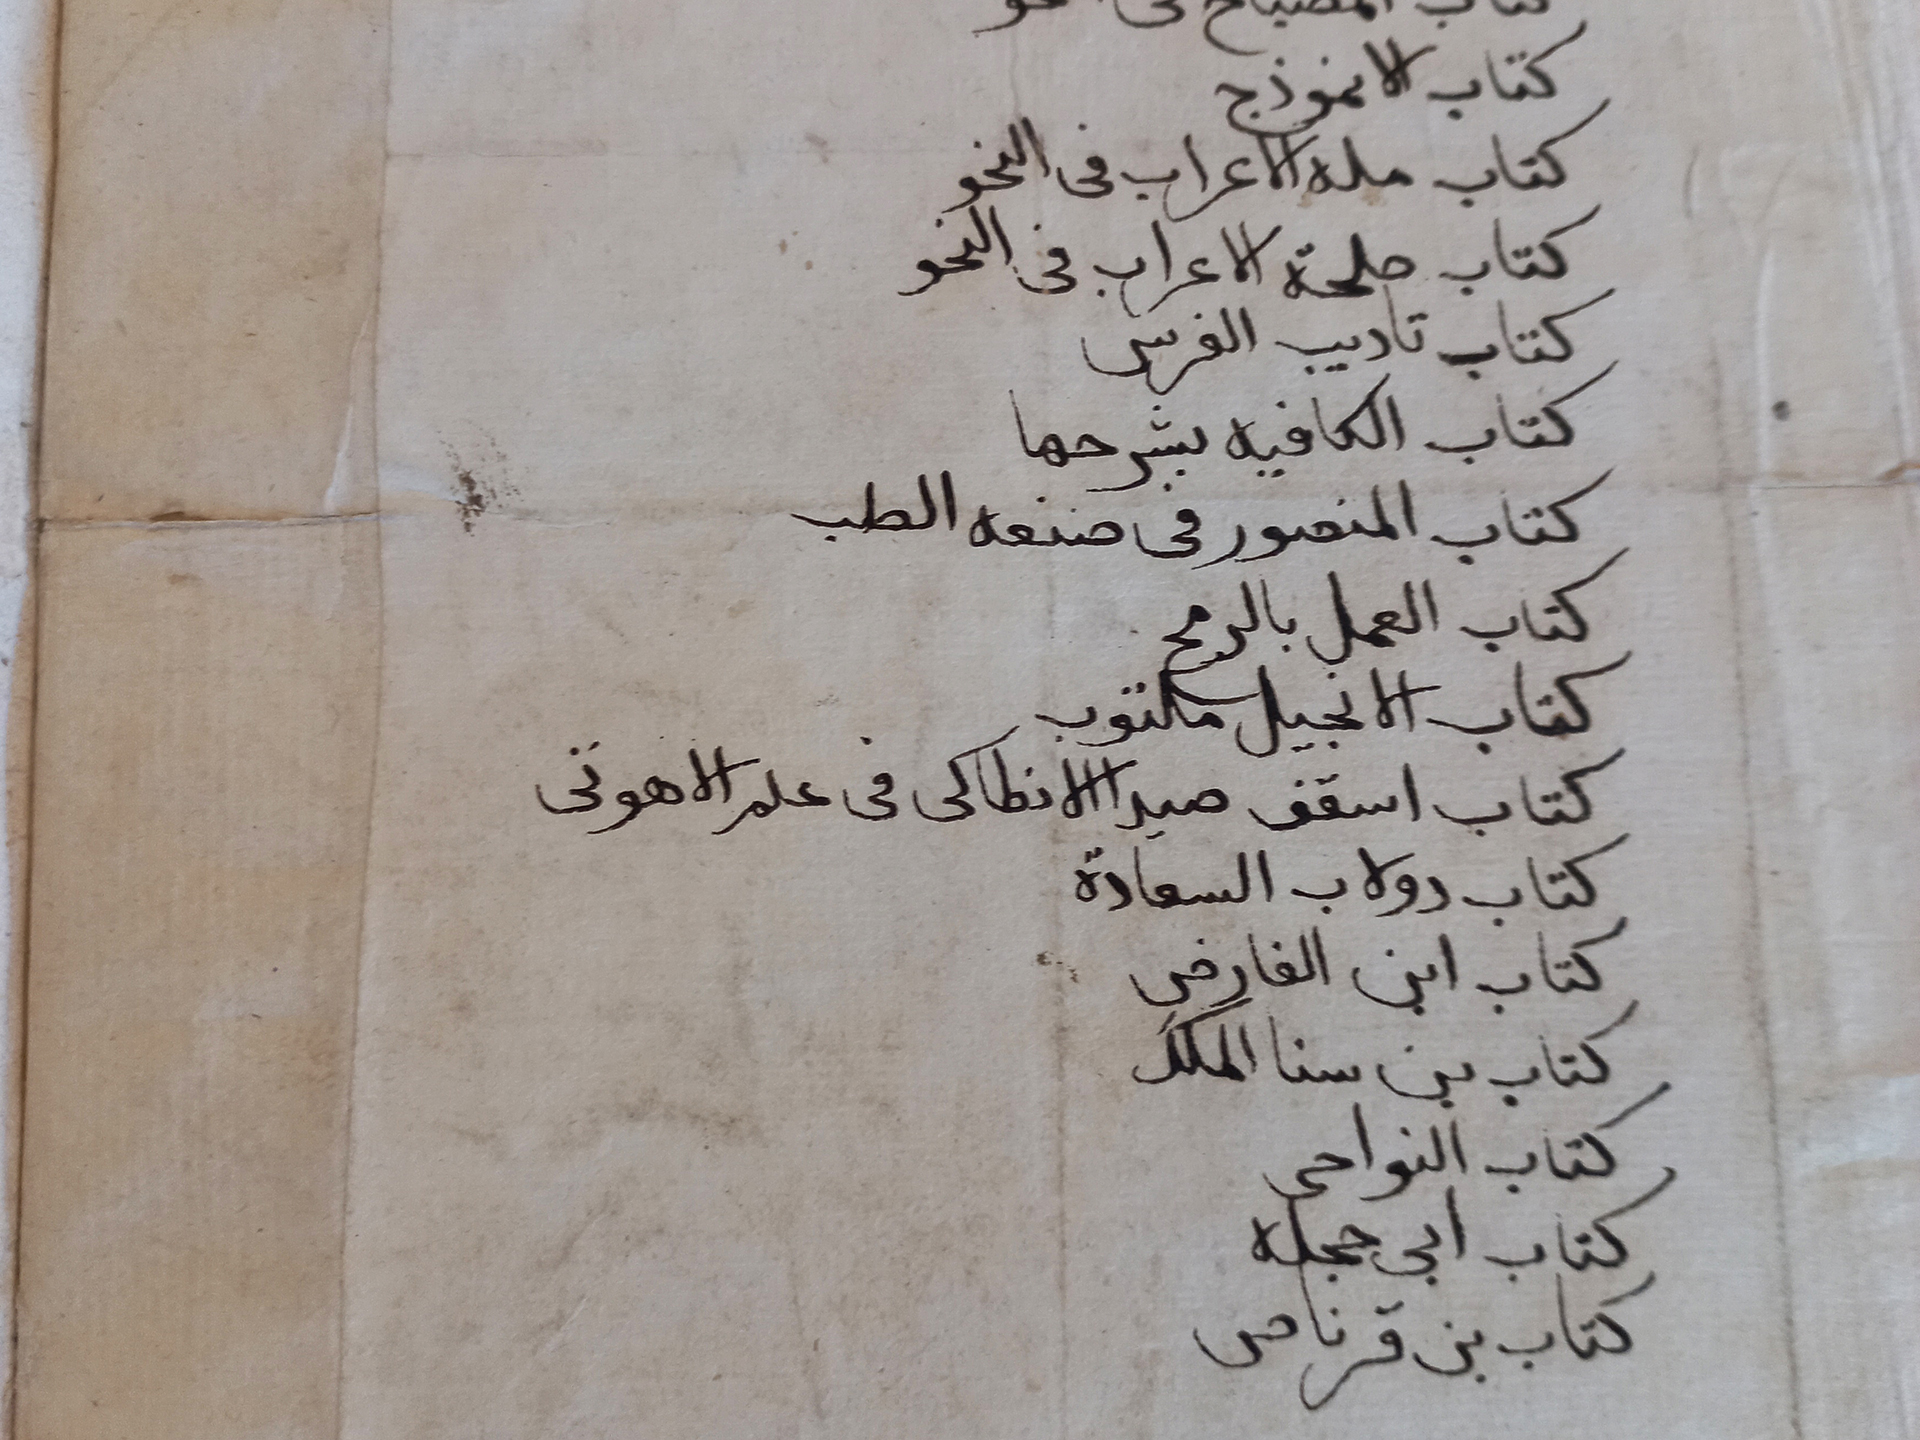 كتاب المصباح فى النحو
كتاب الانموذج
كتاب مله الاعراب فى النحو
كتاب ملحة الاعراب فى النحو
كتاب تاديب الفرس
كتاب الكافيه بشرحها
كتاب المنصور فى صنعه الطب
كتاب العمل بالرمح
كتاب الانجيل مكتوب
كتاب اسقف صيدا الانطاكى فى علم الاهوتى
كتاب دولاب السعادة
كتاب ابن الفارض
كتاب بن سنا الملك
كتاب النواجى
كتاب ابى حجله
كتاب بن قرناص